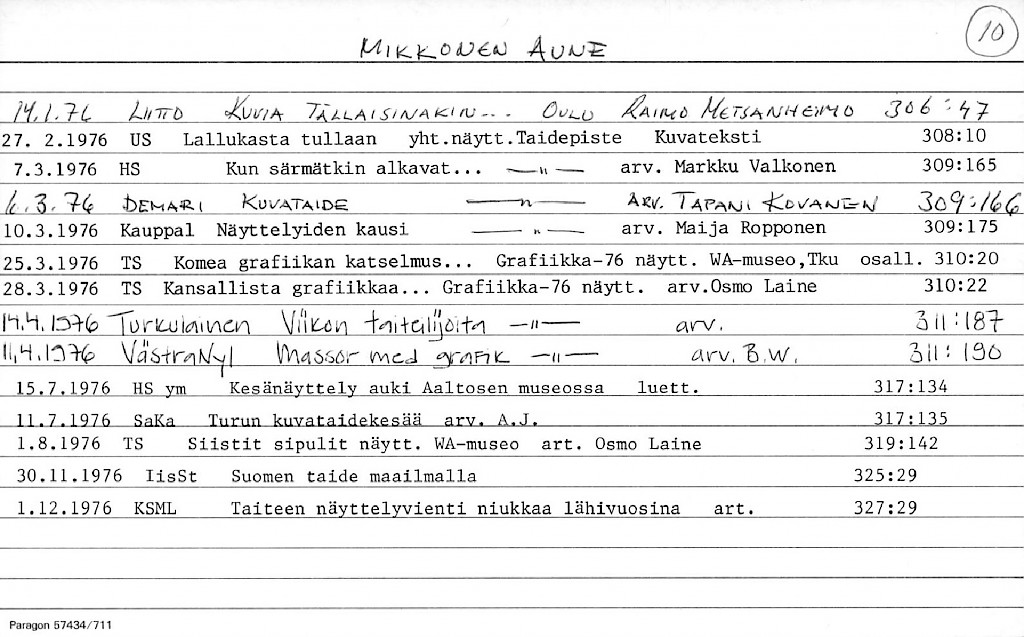 10
MIKKONEN AUNE
14.1.76 LIITTO KUVIA TÄLLAISINAKIN... OULU RAIMO METSÄNHEIMO 306:47
27. 2.1976 US Lallukasta tullaan yht.näytt.Taidepiste Kuvateksti 308:10
7.3.1976 HS Kun särmätkin alkavat... —"— arv. Markku Valkonen 309:165
6.3.76 DEMARI KUVATAIDE —"— ARV. TAPANI KOVANEN 309:166
10.3.1976 Kauppal Näyttelyiden kausi —"— arv. Maija Ropponen 309:175
25.3.1976 TS Komea grafiikan katselmus... Grafiikka-76 näytt. WA-museo,Tku osall. 310:20
28.3.1976 TS Kansallista grafiikkaa... Grafiikka-76 näytt. arv.Osmo Laine 310:22
14.4.1976 Turkulainen Viikon taiteilijoita —"— arv. 311:187
11.4.1976 VästraNyl Massor med grafik —"— arv. B.W. 311:190
15.7.1976 HS ym Kesänäyttely auki Aaltosen museossa luett. 317:134
11.7.1976 SaKa Turun kuvataidekesää arv. A.J. 317:135
1.8.1976 TS Siistit sipulit näytt. WA-museo art. Osmo Laine 319:142
30.11.1976 IisSt Suomen taide maailmalla 325:29
1.12.1976 KSML Taiteen näyttelyvienti niukkaa lähivuosina art. 327:29
Paragon 57434/711